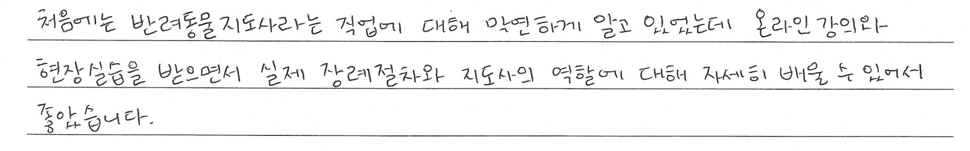 처음에는 반려동물지도사라는 직업에 대해 막연하게 알고 있었는데 온라인강의와
현장실습을 받으면서 실제 장례절차와 지도사의 역할에 대해 자세히 배울 수 있어서
좋았습니다.